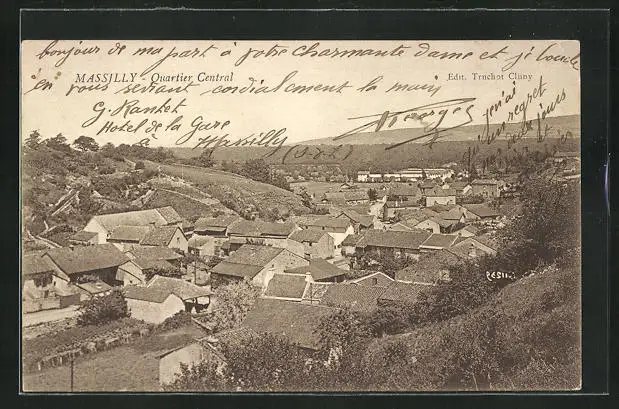 bonjour de ma part à votre charmante dame et je loue
en vous serrant cordialement la main
MASSILLY - Quartier Central
Edit. Truchot Cluny
G. Rantet
Hotel de la Gare
Massilly
Georges
j'ai
regret